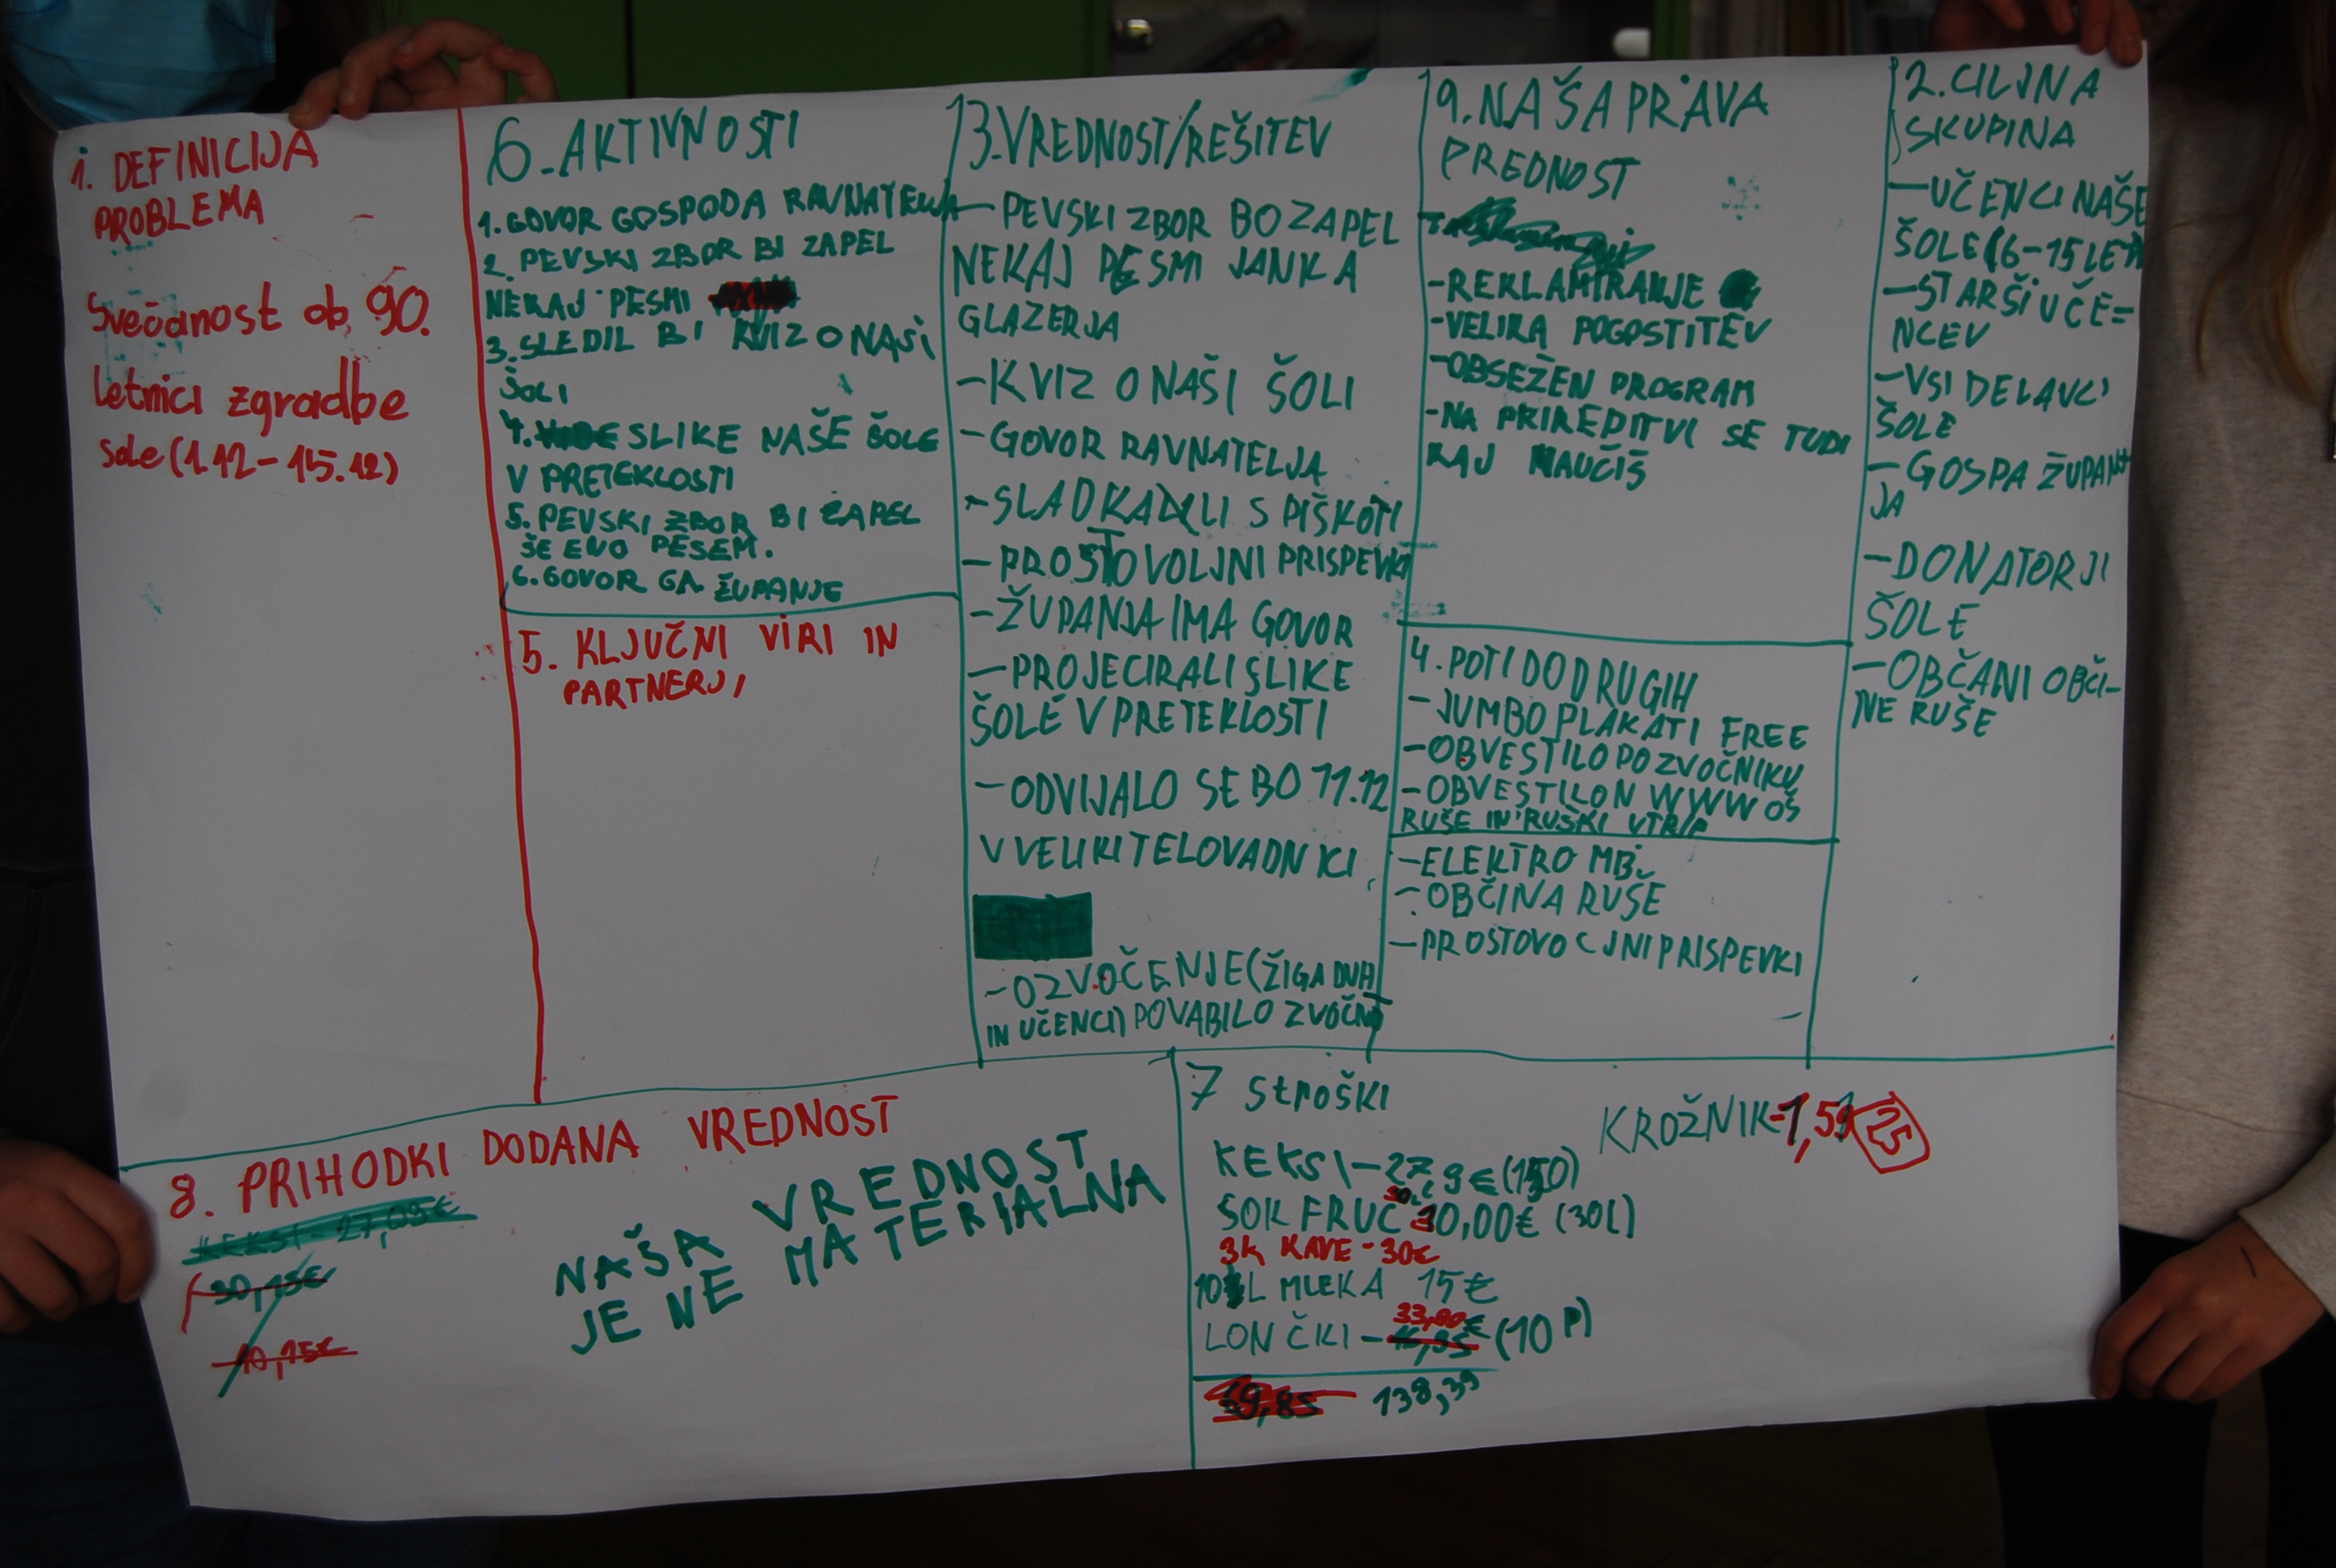 1. DEFINICIJA
PROBLEMA
Svečanost ob 90.
letnici zgradbe
šole (1.12 - 15.12)
6. AKTIVNOSTI
1. GOVOR GOSPODA RAVNATELJA
2. PEVSKI ZBOR BI ZAPEL
NEKAJ PESMI
3. SLEDIL BI KVIZ O NAŠI
ŠOLI
4. SLIKE NAŠE ŠOLE
V PRETEKLOSTI
5. PEVSKI ZBOR BI ZAPEL
ŠE ENO PESEM.
6. GOVOR GA. ŽUPANJE
5. KLJUČNI VIRI IN
PARTNERJI
3. VREDNOST/REŠITEV
- PEVSKI ZBOR BO ZAPEL
NEKAJ PESMI JANKA
GLAZERJA
- KVIZ O NAŠI ŠOLI
- GOVOR RAVNATELJA
- SLADKALI S PIŠKOTI
- PROSTOVOLJNI PRISPEVKI
- ŽUPANJA IMA GOVOR
- PROJECIRALI SLIKE
ŠOLE V PRETEKLOSTI
- ODVIJALO SE BO 11.12
V VELIKI TELOVADNICI
- OZVOČENJE (ŽIGA DUH
IN UČENCI) POVABILO ZVOČNO
9. NAŠA PRAVA
PREDNOST
- REKLAMIRANJE
- VELIKA POGOSTITEV
- OBSEŽEN PROGRAM
- NA PRIREDITVI SE TUDI
KAJ NAUČIŠ
4. POTI DO DRUGIH
- JUMBO PLAKATI FREE
- OBVESTILO PO ZVOČNIKU
- OBVESTILO N WWW OŠ
RUŠE IN RUŠKI UTRIP
- ELEKTRO MB.
- OBČINA RUŠE
- PROSTOVOLJNI PRISPEVKI
2. CILJNA
SKUPINA
- UČENCI NAŠE
ŠOLE (6-15 LET)
- STARŠI UČE=
NCEV
- VSI DELAVCI
ŠOLE
- GOSPA ŽUPAN
JA
- DONATORJI
ŠOLE
- OBČANI OBČI-
NE RUŠE
8. PRIHODKI DODANA VREDNOST
KEKSI - 27,
30,15€
NAŠA VREDNOST
JE NE MATERIALNA
7 Stroški
KROŽNIK - 1,59 25
KEKSI - 27,9 € (150)
SOK FRUC 30,00€ (30L)
3k KAVE - 30€
10 L MLEKA 15€
33,90€
LONČKI - (10 P)
138,39